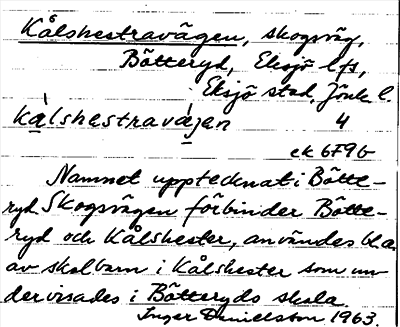 Kålshestravägen, skogsväg,
Bötteryd, Eksjö lfs,
Eksjö stad, Jönk. l.
kàlshestravájen 4
ek 6F9G
Namnet upptecknat i Bötte-
ryd. Skogsvägen förbinder Bötte-
ryd och Kålshester, användes bl.a.
av skolbarn i Kålshester som un-
dervisades i Bötteryds skola.
Inger Danielsson 1963.